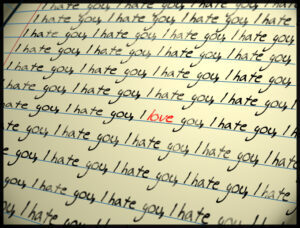 I hate you, I hate you, I hate you, I hate you,
I hate you, I hate you, I hate you, I hate you,
I hate you, I hate you, I hate you, I hate you,
I hate you, I hate you, I hate you, I hate you,
I hate you, I hate you, I hate you, I hate you,
hate you, I hate you, I hate you, I hate you,
hate you, I hate you, I love you, I hate you, I hate
I hate you, I hate you, I hate you, I hate you,
hate you, I hate you, I hate you, I hate you,
you, I hate you, I hate you, I hate you, I hate
you, I hate you, I hate you, I hate
I hate you, I hate you,